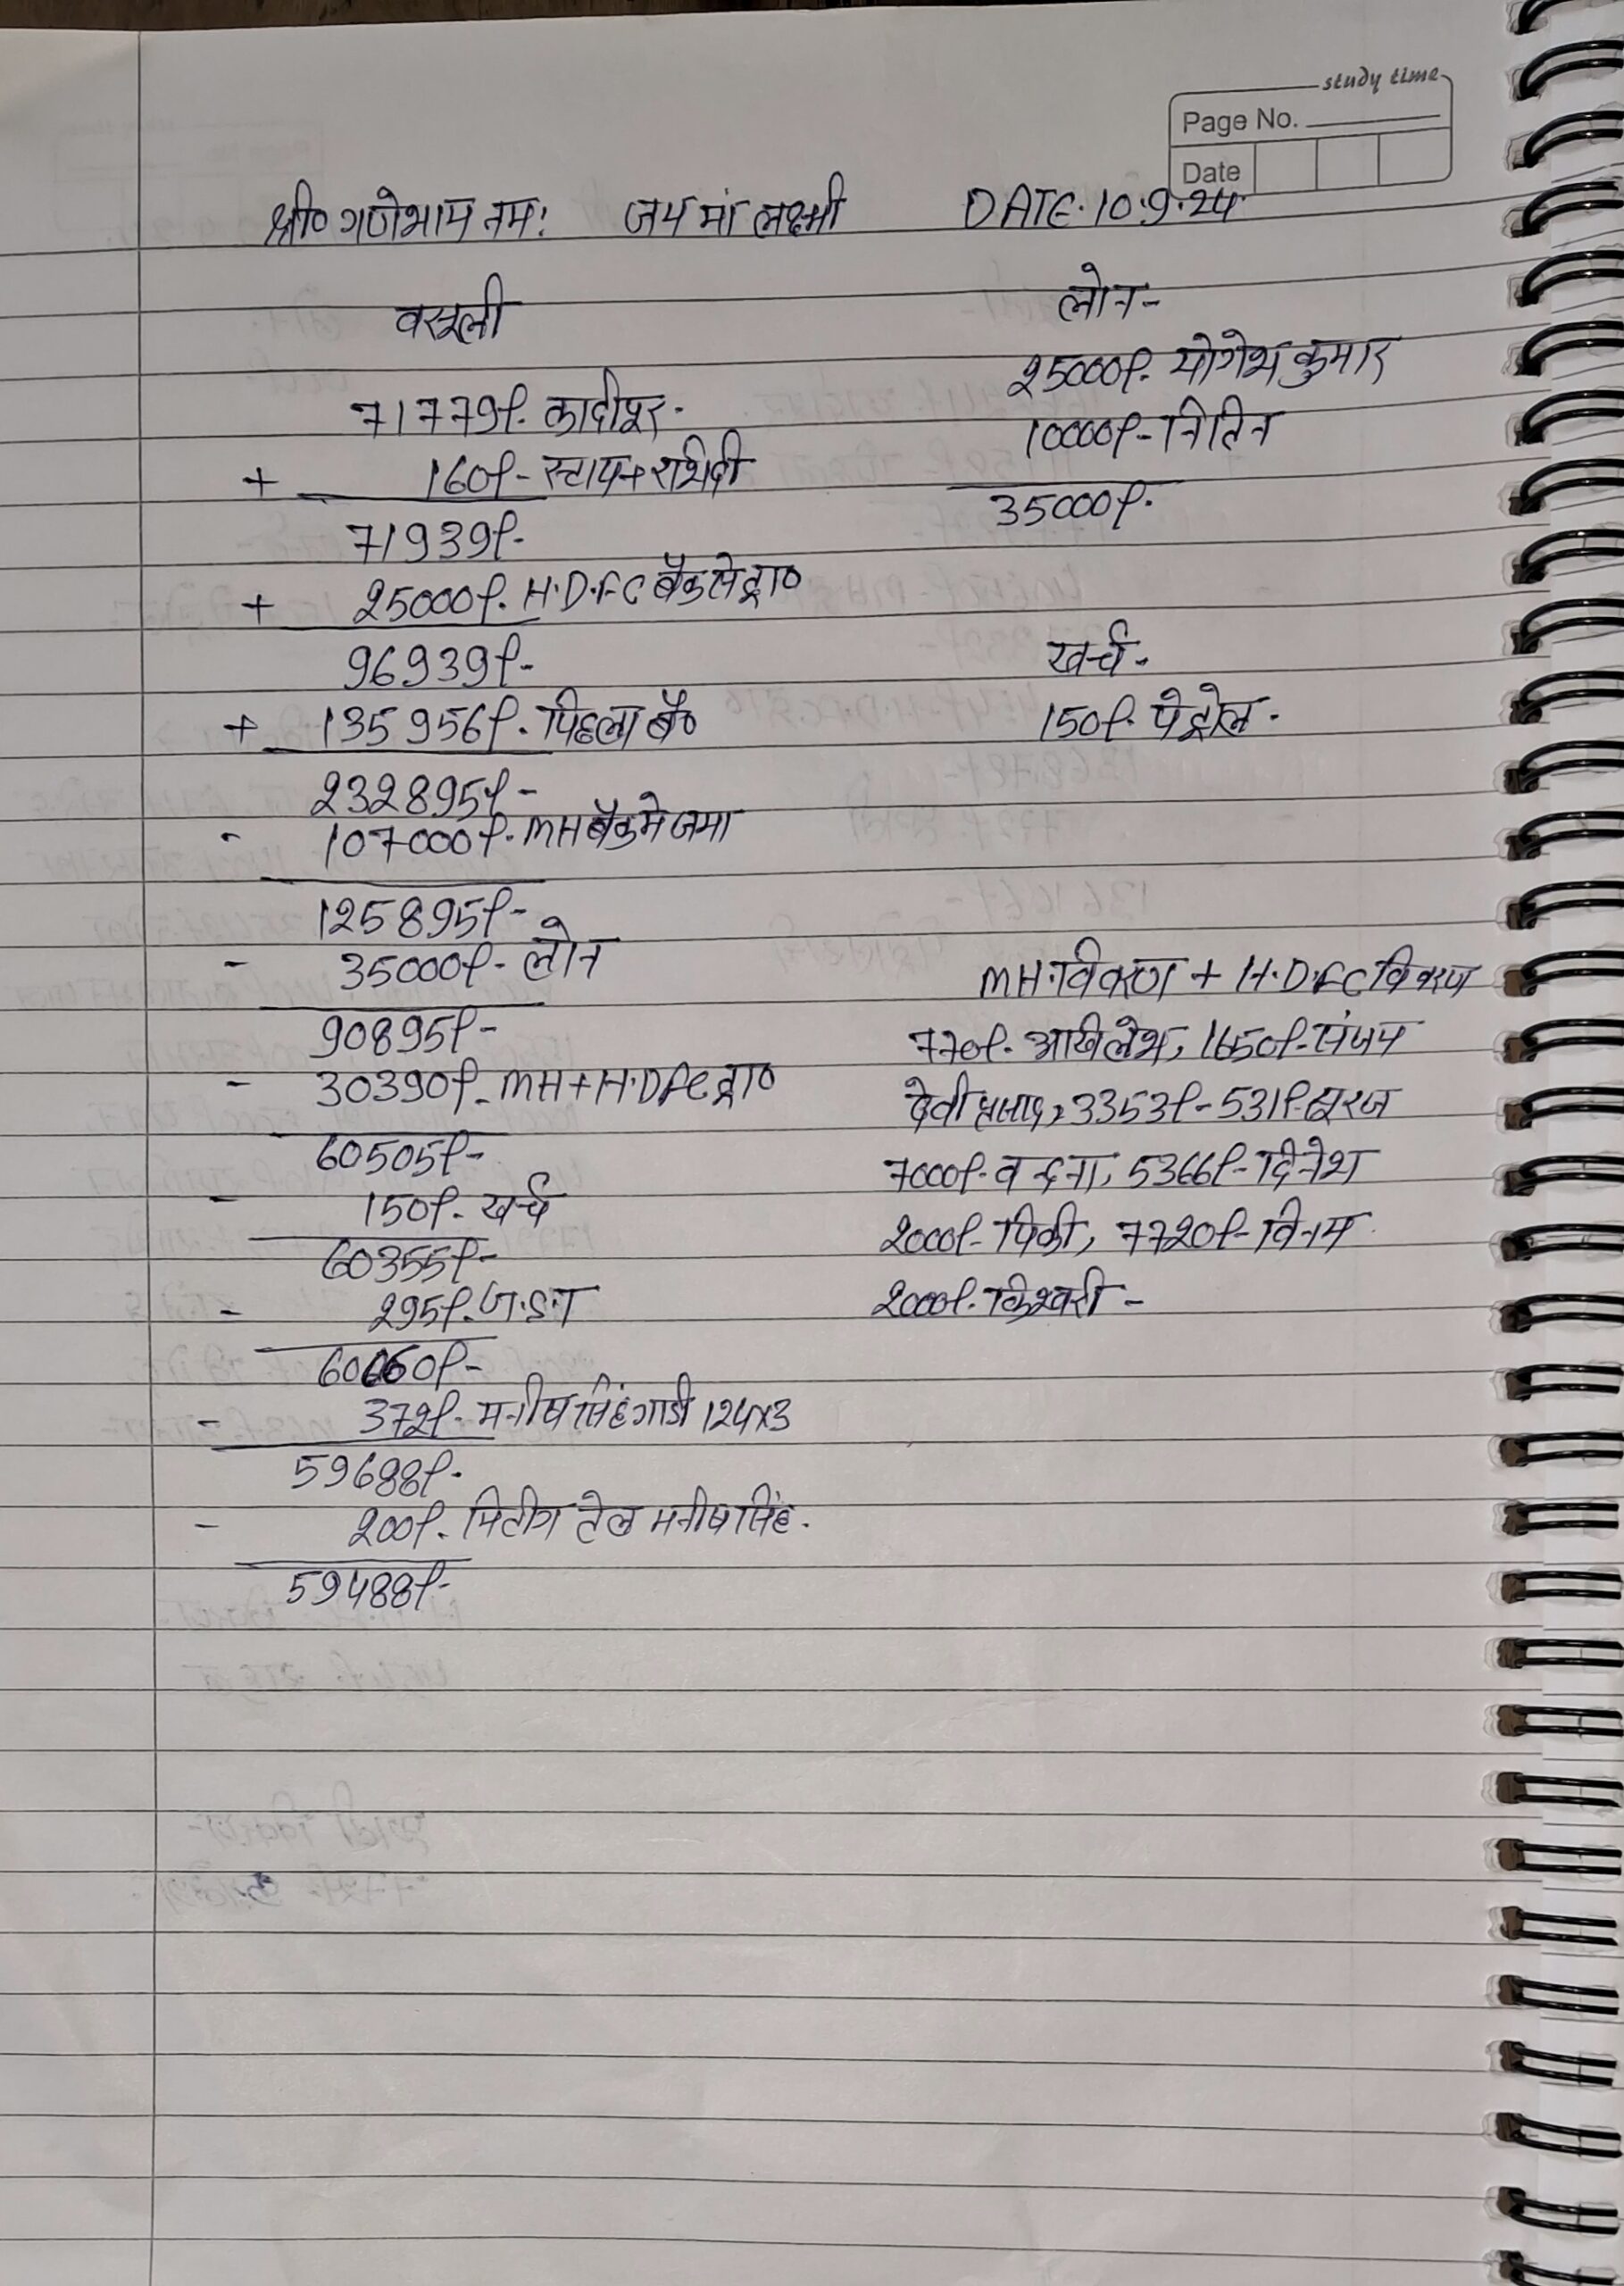 study time
Page No.
Date
श्री० गणेशाय नमः जय मां लक्ष्मी DATE. 10.9.24
वसूली
71779/- कादीपुर.
+ 160/- स्टाम्प + रशीदी
71939/-
+ 25000/- H.D.F.C बैंक से ट्रा०
96939/-
+ 135956/- पिछला बै०
232895/-
- 107000/- MH बैंक मे जमा
125895/-
- 35000/- लोन
90895/-
- 30390/- MH + H.DFC ट्रा०
60505/-
- 150/- खर्च
60355/-
- 295/- G.S.T
60060/-
- 372/- मनीष सिंह गाडी 124x3
59688/-
- 200/- मिटींग तेल मनीष सिंह.
59488/-
लोन-
25000/- योगेश कुमार
10000/- नितिन
35000/-
खर्च-
150/- पेट्रोल.
MH.विवरण + H.D.F.C विवरण
770/- अखिलेश, 1650/- संजय
देवी प्रसाद, 3353/- 531/- सूरज
7000/- वन्दना, 5366/- दिनेश
2000/- पिंकी, 7720/- विनय
2000/-